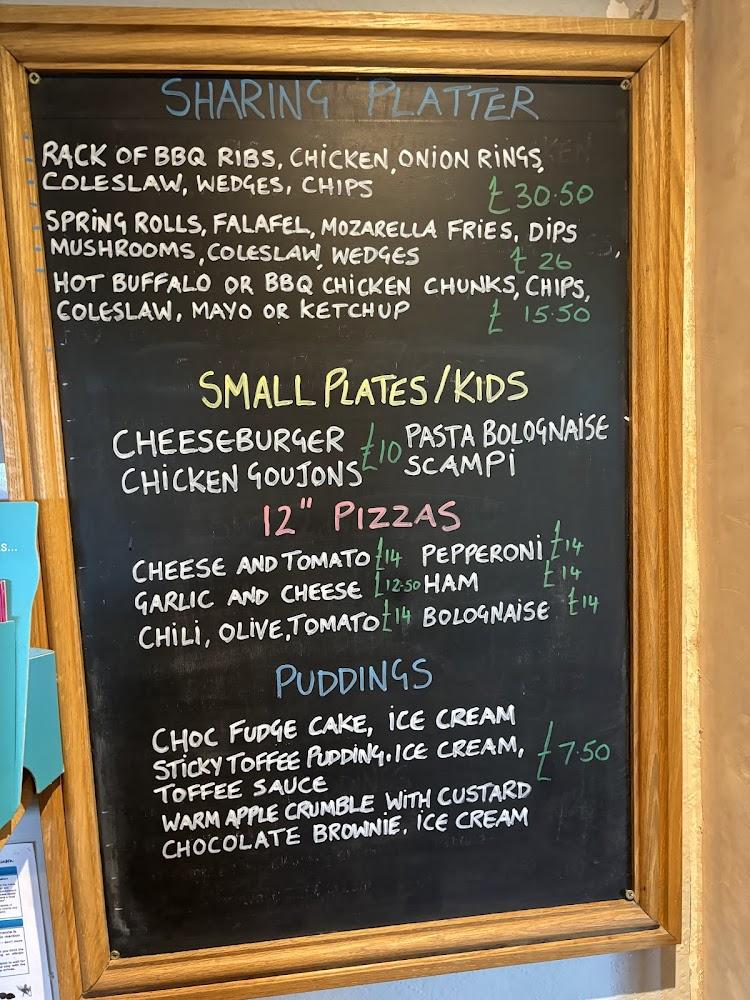 SHARING PLATTER
RACK OF BBQ RIBS, CHICKEN, ONION RINGS,
COLESLAW, WEDGES, CHIPS £30.50
SPRING ROLLS, FALAFEL, MOZARELLA FRIES, DIPS
MUSHROOMS, COLESLAW, WEDGES £26
HOT BUFFALO OR BBQ CHICKEN CHUNKS, CHIPS,
COLESLAW, MAYO OR KETCHUP £15.50
SMALL PLATES/KIDS
CHEESEBURGER £10 PASTA BOLOGNAISE
CHICKEN GOUJONS SCAMPI
12" PIZZAS
CHEESE AND TOMATO £14 PEPPERONI £14
GARLIC AND CHEESE £12.50 HAM £14
CHILI, OLIVE, TOMATO £14 BOLOGNAISE £14
PUDDINGS
CHOC FUDGE CAKE, ICE CREAM
STICKY TOFFEE PUDDING, ICE CREAM, £7.50
TOFFEE SAUCE
WARM APPLE CRUMBLE WITH CUSTARD
CHOCOLATE BROWNIE, ICE CREAM